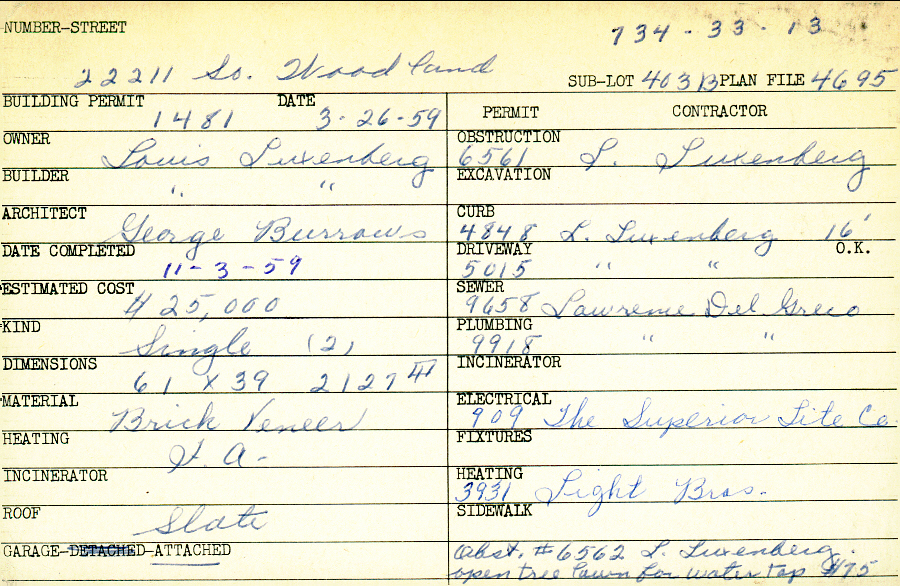 NUMBER-STREET 734-33-13
22211 So. Woodland
SUB-LOT 403B PLAN FILE 4695
BUILDING PERMIT DATE
1481 3-26-59
PERMIT CONTRACTOR
OWNER Louis Luxenberg
OBSTRUCTION 6561 L. Luxenberg
BUILDER " "
EXCAVATION
ARCHITECT George Burrows
CURB 4848 L. Luxenberg 16'
DATE COMPLETED 11-3-59
DRIVEWAY O.K.
5015 " "
ESTIMATED COST $25,000
SEWER 9658 Lawrence Del Greco
KIND Single (2)
PLUMBING 9918 " "
DIMENSIONS 61 x 39 2127
INCINERATOR
MATERIAL Brick Veneer
ELECTRICAL 909 The Superior Lite Co.
HEATING F. A.
FIXTURES
INCINERATOR
HEATING 3931 Light Bros.
ROOF Slate
SIDEWALK
GARAGE-DETACHED-ATTACHED
Obst. #6562 L. Luxenberg.
open tree lawn for water tap $75